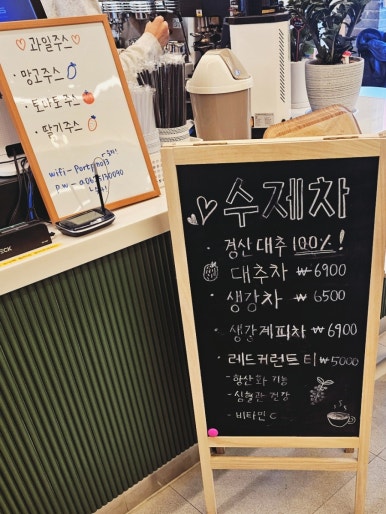 과일주스
· 망고주스
· 토마토주스
· 딸기주스
wifi - Portpino13
수제차
· 경산대추 100%!
대추차 ₩6900
· 생강차 ₩6500
· 생강계피차 ₩6900
· 레드커런트 티 ₩5000
- 항산화 기능
- 심혈관 건강
- 비타민 C